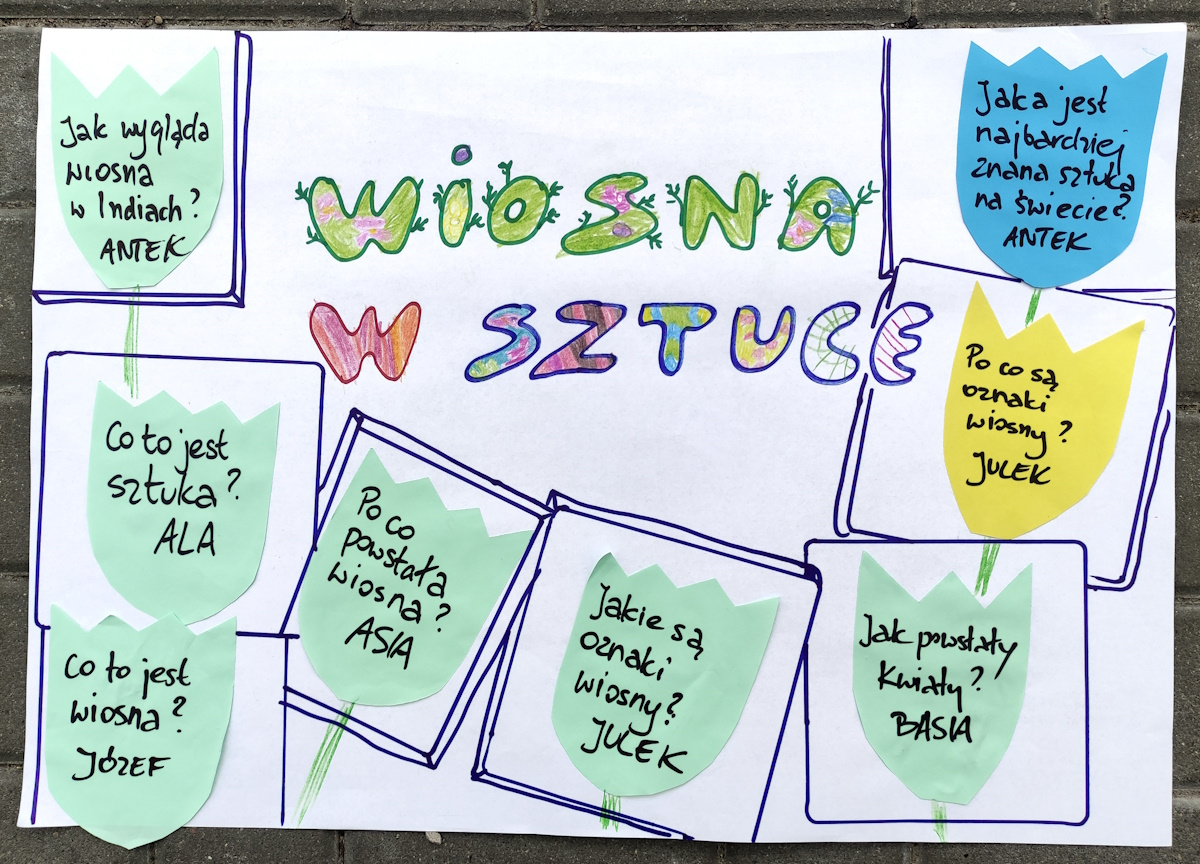 WIOSNA
W SZTUCE
Jak wygląda
wiosna
w Indiach?
ANTEK
Jaka jest
najbardziej
znana sztuka
na świecie?
ANTEK
Po co są
oznaki
wiosny?
JULEK
Co to jest
sztuka?
ALA
Po co
powstała
wiosna?
ASIA
Jakie są
oznaki
wiosny?
JULEK
Jak powstały
kwiaty?
BASIA
Co to jest
wiosna?
JÓZEF